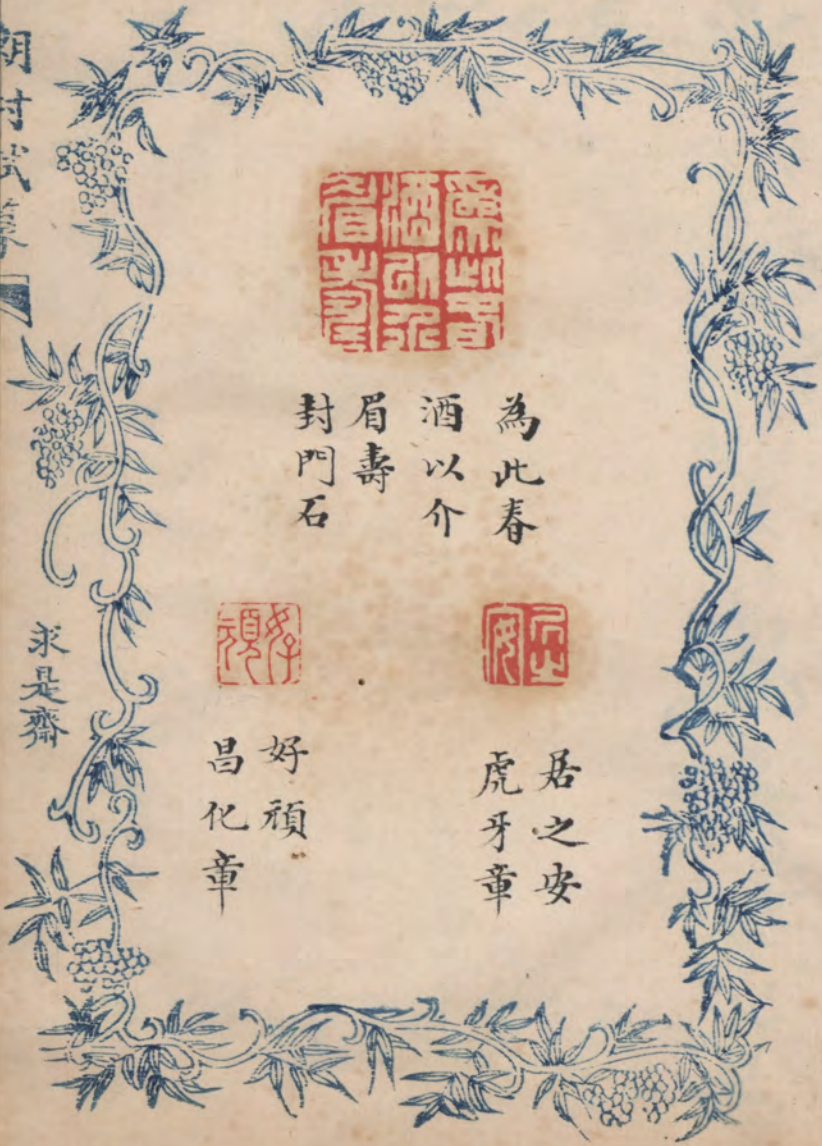 為此春
酒以介
眉壽
為此春
酒以介
眉壽
封門石
居之
安
居之安
虎牙章
好
頑
好頑
昌化章
求是齋